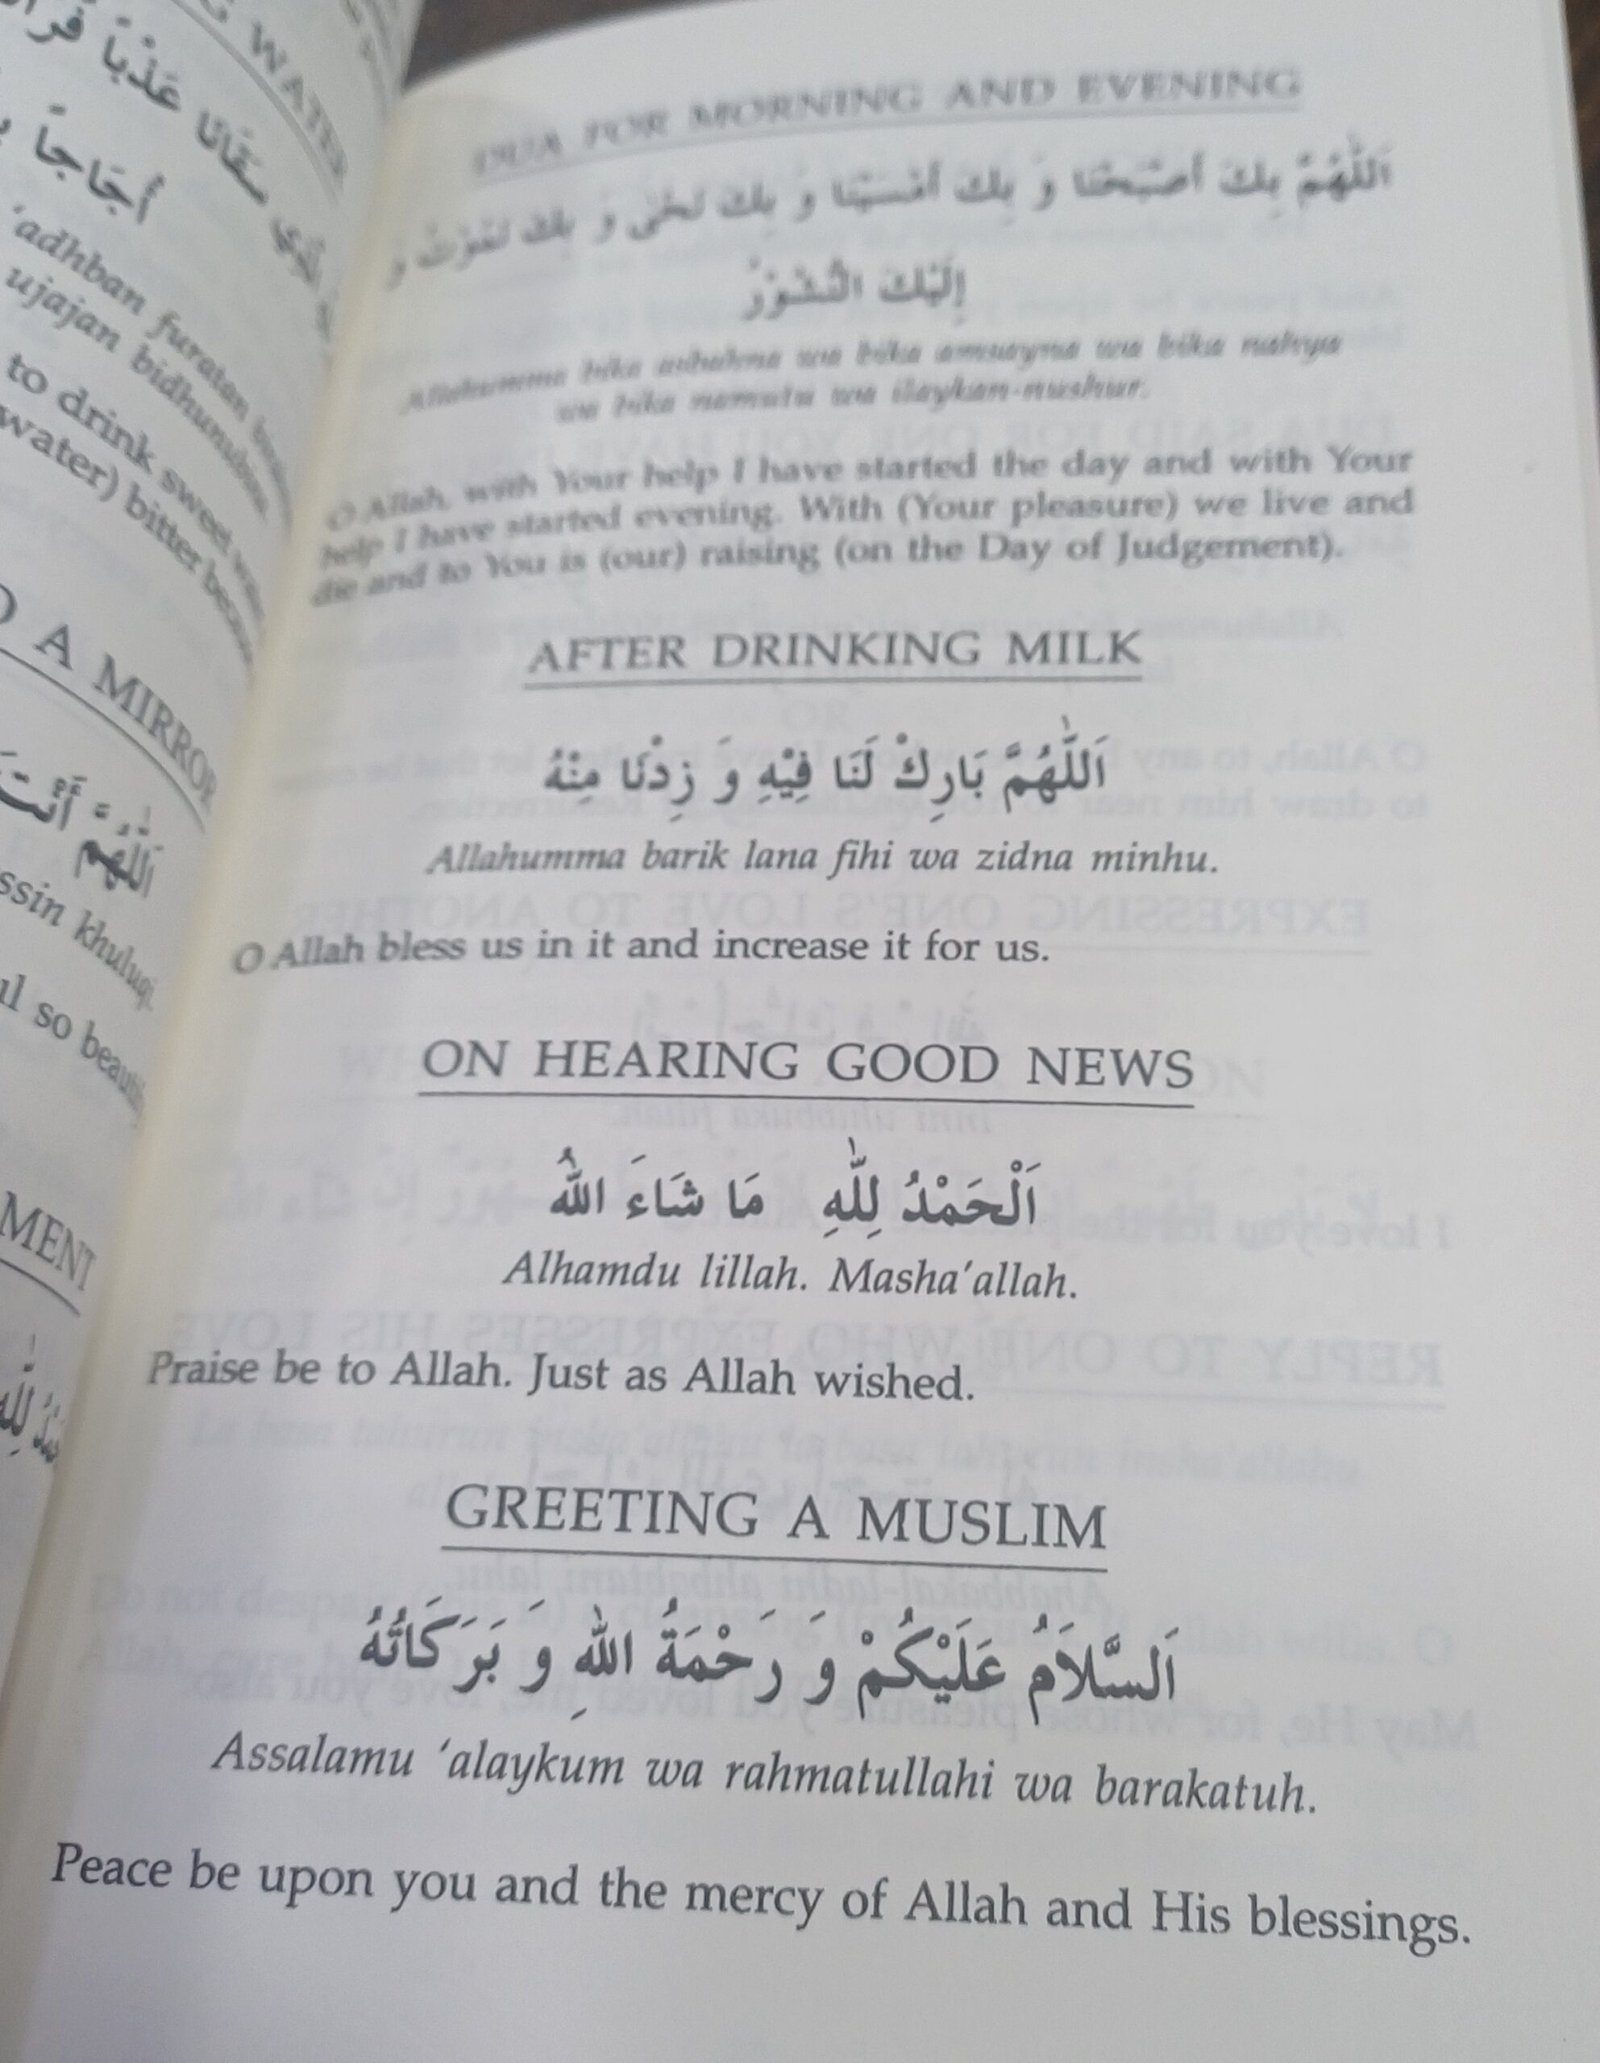 WATER
عَذْباً
سَقَانَا
أُجَاجاً
'adhban furatan
ujajan bidhunubina
to drink sweet
water) bitter
A MIRROR
اَللّٰهُمَّ أَنْتَ
khuluqi.
so
DUA FOR MORNING AND EVENING
اَللّٰهُمَّ بِكَ أَصْبَحْنَا وَ بِكَ أَمْسَيْنَا وَ بِكَ نَحْيٰى وَ بِكَ نَمُوْتُ وَ
إِلَيْكَ النُّشُوْرُ
Allahumma bika asbahna wa bika amsayna wa bika nahya
wa bika namutu wa ilaykan-nushur.
O Allah, with Your help I have started the day and with Your
help I have started evening. With (Your pleasure) we live and
die and to You is (our) raising (on the Day of Judgement).
AFTER DRINKING MILK
اَللّٰهُمَّ بَارِكْ لَنَا فِيْهِ وَ زِدْنَا مِنْهُ
Allahumma barik lana fihi wa zidna minhu.
O Allah bless us in it and increase it for us.
ON HEARING GOOD NEWS
اَلْحَمْدُ لِلّٰهِ مَا شَاءَ اللهُ
Alhamdu lillah. Masha'allah.
Praise be to Allah. Just as Allah wished.
GREETING A MUSLIM
اَلسَّلاَمُ عَلَيْكُمْ وَ رَحْمَةُ اللهِ وَ بَرَكَاتُهُ
Assalamu 'alaykum wa rahmatullahi wa barakatuh.
Peace be upon you and the mercy of Allah and His blessings.